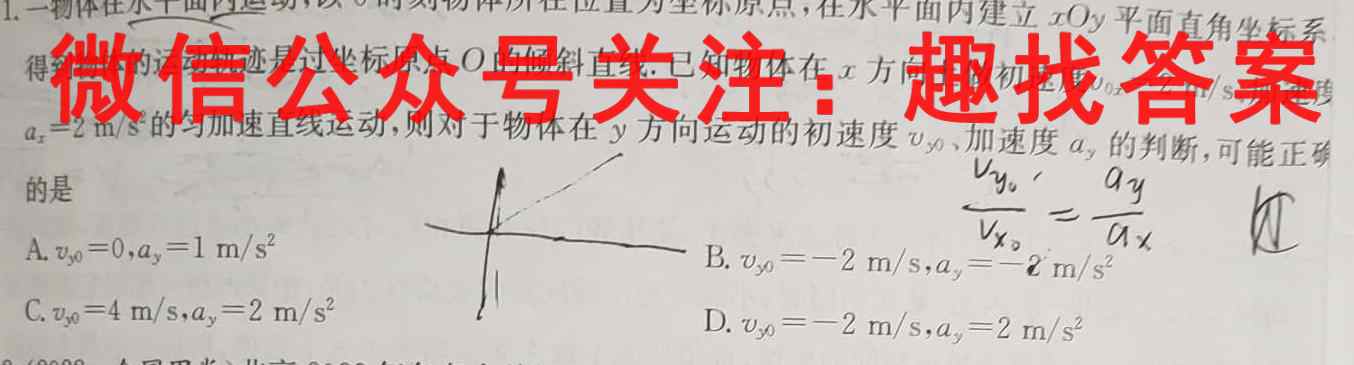 1.一物体在水平面内运动,以 0 时刻物体所在位置为坐标原点,在水平面内建立 xOy 平面直角坐标系
微信公众号关注:趣找答案
的运动轨迹是过坐标原点 O 的倾斜直线.已知物体在 x 方向 初速度
aₓ=2 m/s²的匀加速直线运动,则对于物体在 y 方向运动的初速度 v_y0、加速度 a_y 的判断,可能正确
的是
v_y0 / v_x0 = a_y / a_x
A. v_y0=0,a_y=1 m/s²
B. v_y0=-2 m/s,a_y=-2 m/s²
C. v_y0=4 m/s,a_y=2 m/s²
D. v_y0=-2 m/s,a_y=2 m/s²